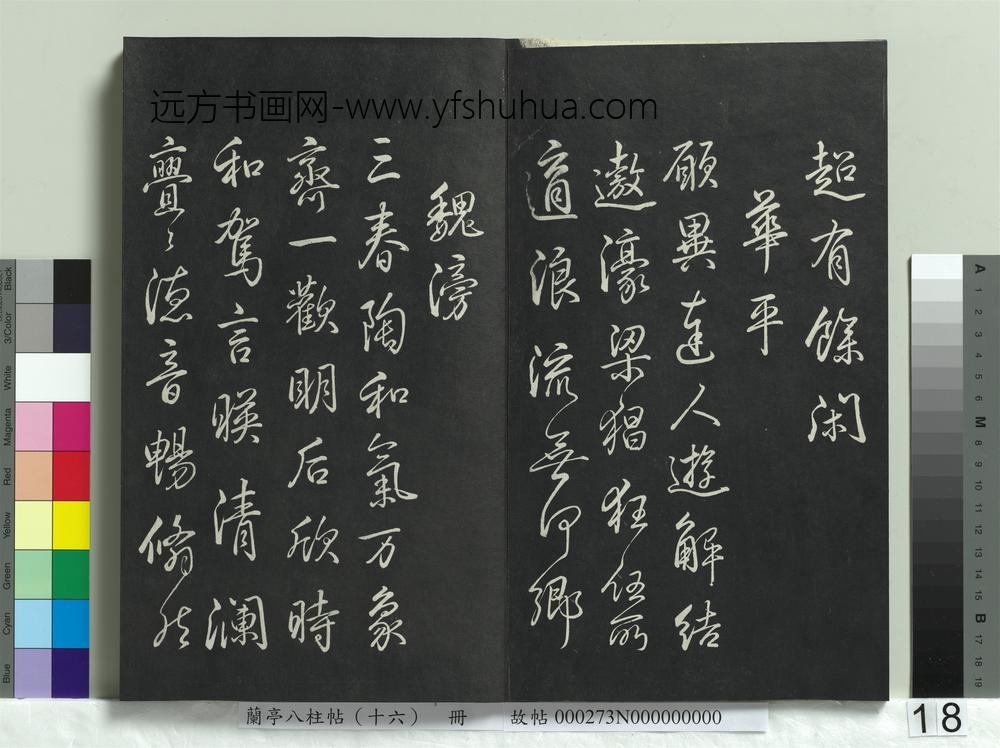 远方书画网-www.yfshuhua.com
超有餘閑
華平
願異達人遊解結
遨濠梁猖狂任所
適浪流無何鄉
魏滂
三春陶和氣万象
齊一歡明后欣時
和駕言暎清瀾
亹々德音暢翛然
蘭亭八柱帖(十六) 冊 故帖000273N000000000
18
Black
3/Color
White
Magenta
Red
Yellow
Green
Cyan
Blue
A
1
2
3
4
5
6
M
8
9
10
11
12
13
14
15
B
17
18
19